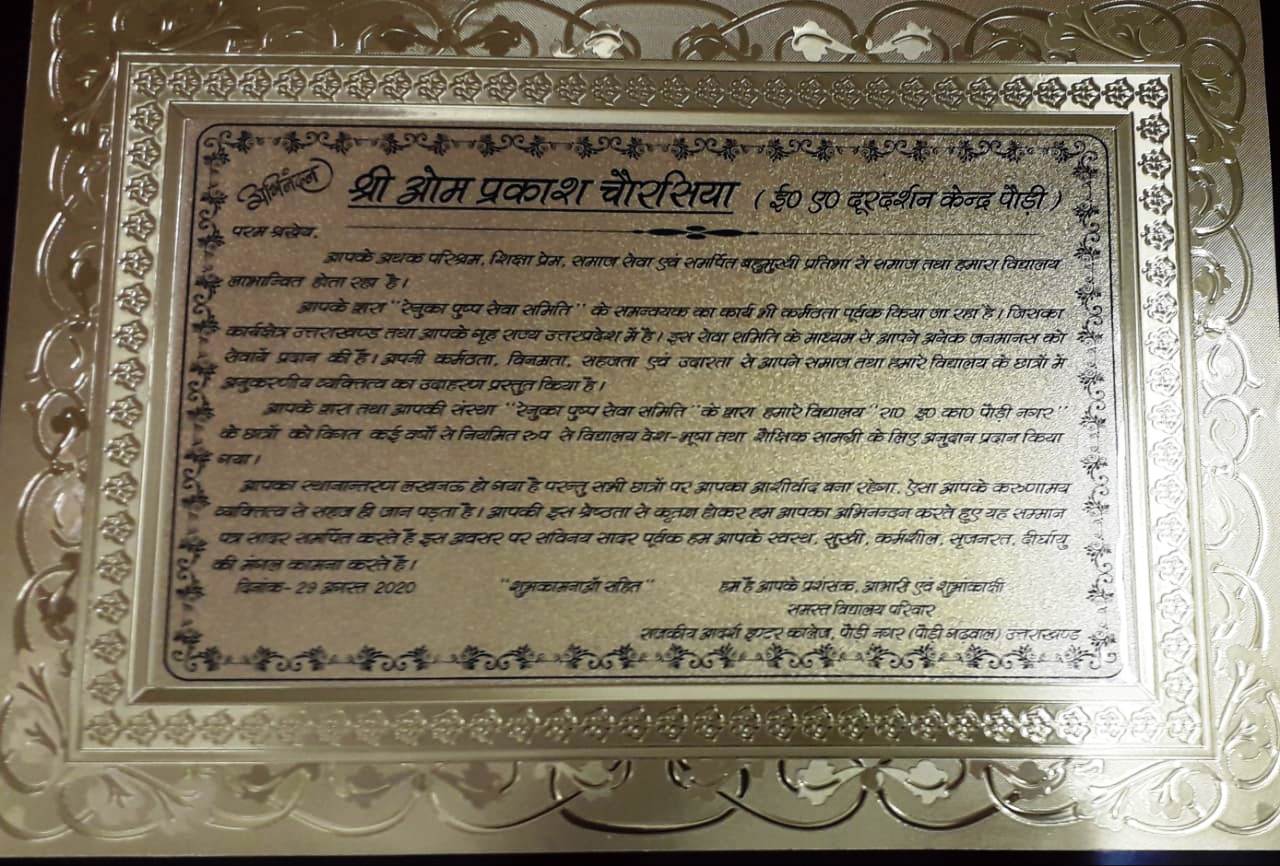 अभिनंदन श्री ओम प्रकाश चौरसिया ( ई० ए० दूरदर्शन केन्द्र पौड़ी )
परम श्रद्धेय,
आपके अथक परिश्रम, शिक्षा प्रेम, समाज सेवा एवं समर्पित बहुमुखी प्रतिभा से समाज तथा हमारा विद्यालय
लाभान्वित होता रहा है।
आपके द्वारा "रेनुका पुष्प सेवा समिति" के समन्वयक का कार्य भी कर्मठता पूर्वक किया जा रहा है। जिसका
कार्यक्षेत्र उत्तराखण्ड तथा आपके गृह राज्य उत्तरप्रदेश में है। इस सेवा समिति के माध्यम से आपने अनेक जनमानस को
सेवायें प्रदान की है। अपनी कर्मठता, विनम्रता, सहजता एवं उदारता से आपने समाज तथा हमारे विद्यालय के छात्रों में
अनुकरणीय व्यक्तित्व का उदाहरण प्रस्तुत किया है।
आपके द्वारा तथा आपकी संस्था "रेनुका पुष्प सेवा समिति" के द्वारा हमारे विद्यालय "रा० इ० का० पौड़ी नगर"
के छात्रों को विगत कई वर्षों से नियमित रुप से विद्यालय वेश-भूषा तथा शैक्षिक सामग्री के लिए अनुदान प्रदान किया
गया।
आपका स्थानान्तरण लखनऊ हो गया है परन्तु सभी छात्रों पर आपका आशीर्वाद बना रहेगा, ऐसा आपके करुणामय
व्यक्तित्व से सहज ही जान पड़ता है। आपकी इस श्रेष्ठता से कृतज्ञ होकर हम आपका अभिनन्दन करते हुए यह सम्मान
पत्र सादर समर्पित करते हैं इस अवसर पर सविनय सादर पूर्वक हम आपके स्वस्थ, सुखी, कर्मशील, सृजनरत, दीर्घायु
की मंगल कामना करते हैं।
दिनांक- 29 अगस्त 2020 "शुभकामनाओं सहित" हम हैं आपके प्रशंसक, आभारी एवं शुभाकांक्षी
समस्त विद्यालय परिवार
राजकीय आदर्श इण्टर कालेज, पौड़ी नगर (पौड़ी गढ़वाल) उत्तराखण्ड